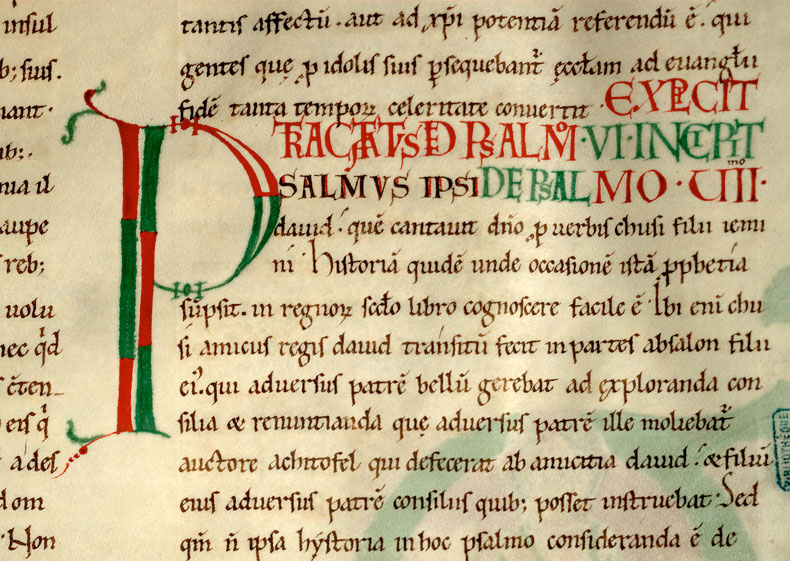 insul
b; suis.
nant ·
ib; ·
nia il
aupe
reb;
uolu
nec qd̄
sc̄ten
eis q̄
ades
dom
Non
tantis affectū. aut ad xp̄i potentiā referendū ē. qui
gentes quę p̄ idolis suis ꝑsequebant᷑ ęcct̄am ad euangt̄ii
fidē tanta tempoꝝ celeritate conuertit · EXPLICIT
TRACTATUS DE PSALMO · VI · INCIPIT
PSALMVS IPSI DE PSALMO · VII ·
dauid · quē cantauit dn̄o p̄ uerbis chusi filii iemi
ni historiā quidē unde occasionē istā ꝓphetia
sūpsit. in regnoꝝ scd̄o libro cognoscere facile ē · Ibi eni chu
si amicus regis dauid transitū fecit in partes absalon filii
ei᷒. qui aduersus patrē bellū gerebat ad ęxploranda con
silia & renuntianda quę aduersus patrē ille moliebat᷑
auctore achitofel qui defecerat ab amicitia dauid · & filiū
eius aduersus patrē consiliis quib; posset instruebat · Sed
qm̄ n̄ ipsa hẏstoria in hoc psalmo consideranda ē de